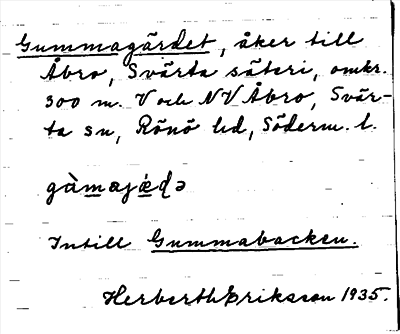 Gummagärdet, åker till
Åbro, Svärta säteri, omkr.
300 m. V och NV Åbro, Svär-
ta sn, Rönö hd, Söderm. l.
gàmajǽdə
Intill Gummabacken.
Herberth Eriksson 1935.